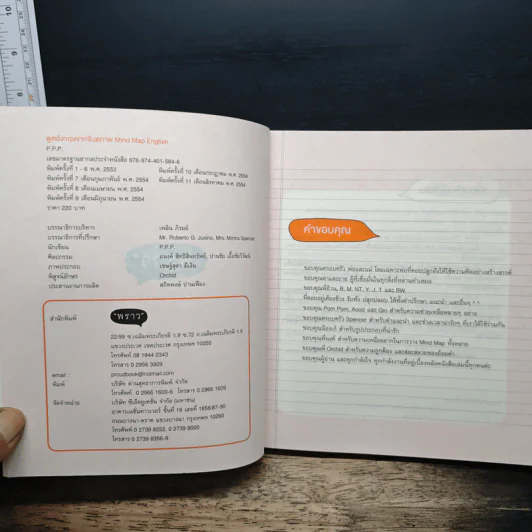 พูดอังกฤษจากจินตภาพ Mind Map English
P.P.P.
เลขมาตรฐานสากลประจำหนังสือ 978-974-401-584-6
พิมพ์ครั้งที่ 1 - 6 พ.ศ. 2553
พิมพ์ครั้งที่ 7 เดือนกุมภาพันธ์ พ.ศ. 2554
พิมพ์ครั้งที่ 8 เดือนเมษายน พ.ศ. 2554
พิมพ์ครั้งที่ 9 เดือนมิถุนายน พ.ศ. 2554
พิมพ์ครั้งที่ 10 เดือนกรกฎาคม พ.ศ. 2554
พิมพ์ครั้งที่ 11 เดือนสิงหาคม พ.ศ. 2554
ราคา 220 บาท
บรรณาธิการบริหาร เพลิน ภิรมย์
บรรณาธิการที่ปรึกษา Mr. Roberto G. Jusino, Mrs. Monta Spencer
นักเขียน P.P.P.
ศิลปกรรม
ภาพประกอบ
พิสูจน์อักษร Orchid
ประสานงานการผลิต สถิตพงษ์ ปานเฟือง
สำนักพิมพ์ "พราว"
22/99 ซ.เฉลิมพระเกียรติ ร.9 ซ.72 ถ.เฉลิมพระเกียรติ ร.9
แขวงประเวศ เขตประเวศ กรุงเทพฯ 10250
โทรศัพท์ 08 1944 2343
โทรสาร 0 2958 3929
email : proudbook@hotmail.com
พิมพ์ บริษัท ด่านสุทธาการพิมพ์ จำกัด
โทรศัพท์ 0 2966 1600-6 โทรสาร 0 2966 1609
จัดจำหน่าย บริษัท ซีเอ็ดยูเคชั่น จำกัด (มหาชน)
อาคารเนชั่นทาวเวอร์ ชั้นที่ 19 เลขที่ 1858/87-90
ถนนบางนา-ตราด แขวงบางนา กรุงเทพฯ 10260
โทรศัพท์ 0 2739 8222, 0 2739 8000
โทรสาร 0 2739 8356-9
คำขอบคุณ
ขอบคุณครอบครัว พ่อและแม่ โดยเฉพาะพ่อที่คอยปลูกฝังให้ใช้ความคิดอย่างสร้างสรรค์
ขอบคุณตาและยาย ผู้ที่เชื่อมั่นในทุกสิ่งที่หลานทำเสมอ
ขอบคุณพี่อ้วน, B, M, NT, Y, J, T และ BW
ที่คอยอยู่เคียงข้าง รับฟัง ปลุกปลอบ ให้ทั้งคำปรึกษา แนะนำ และอื่นๆ ^ ^
ขอบคุณ Pom Pom, และ Gio สำหรับความช่วยเหลือหลายๆ อย่าง
ขอบคุณครอบครัว Spencer สำหรับคำแนะนำ และช่วงเวลาน่ารักๆ ที่เราได้ใช้ร่วมกัน
ขอบคุณน้องเก๋ สำหรับรูปประกอบที่น่ารัก
ขอบคุณพี่นงค์ สำหรับความเหนื่อยยากในการวาง Mind Map ทั้งหลาย
ขอบคุณพี่ Orchid สำหรับความถูกต้อง และสละสลวยของถ้อยคำ
ขอบคุณผู้อ่าน และทุกกำลังใจ ทุกกำลังงานที่อยู่เบื้องหลังหนังสือเล่มนี้ทุกคนค่ะ